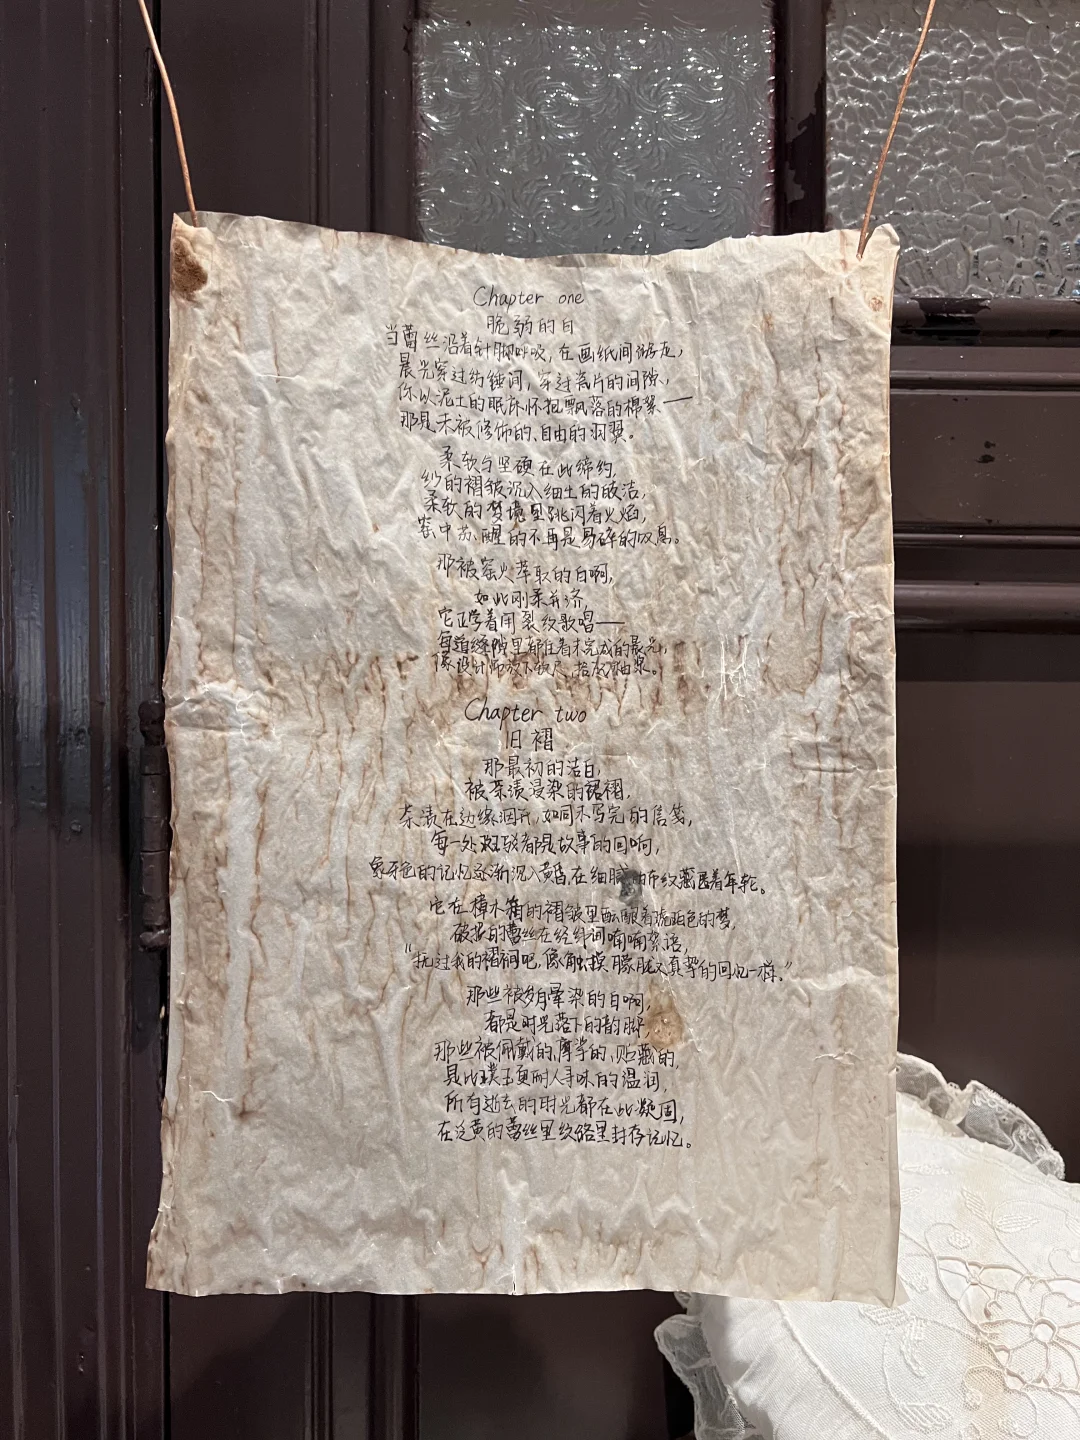 Chapter one
脆弱的白
当蕾丝沿着针脚呼吸，在画纸间游走，
晨光穿过纺锤间，穿过瓷片的间隙，
你以泥土的眠床怀抱飘落的棉絮——
那是未被修饰的、自由的羽翼。
柔软与坚硬在此缔约，
纱的褶皱沉入细土的皎洁，
柔软的梦境里跳闪着火焰，
窑中苏醒的不再是易碎的叹息。
那被窑火萃取的白啊，
如此刚柔并济，
它正学着用裂纹歌唱——
每道缝隙里都住着未完成的晨光，
像设计师放下软尺，拾起釉浆。
Chapter two
旧褶
那最初的洁白，
被茶渍浸染的裙褶，
茶渍在边缘洇开，如同未写完的信笺，
每一处斑驳都是故事的回响，
象牙色的记忆逐渐沉入黄昏，在细腻的布纹藏匿着年轮。
它在樟木箱的褶皱里酝酿着琥珀色的梦，
破损的蕾丝在经纬间喃喃絮语，
“抚过我的褶裥吧，像触摸朦胧又真挚的回忆一样。”
那些被岁月晕染的白啊，
都是时光落下的韵脚，
那些被佩戴的、摩挲的、贴藏的，
是比璞玉更耐人寻味的温润，
所有逝去的时光都在此凝固，
在泛黄的蕾丝里纹路里封存记忆。